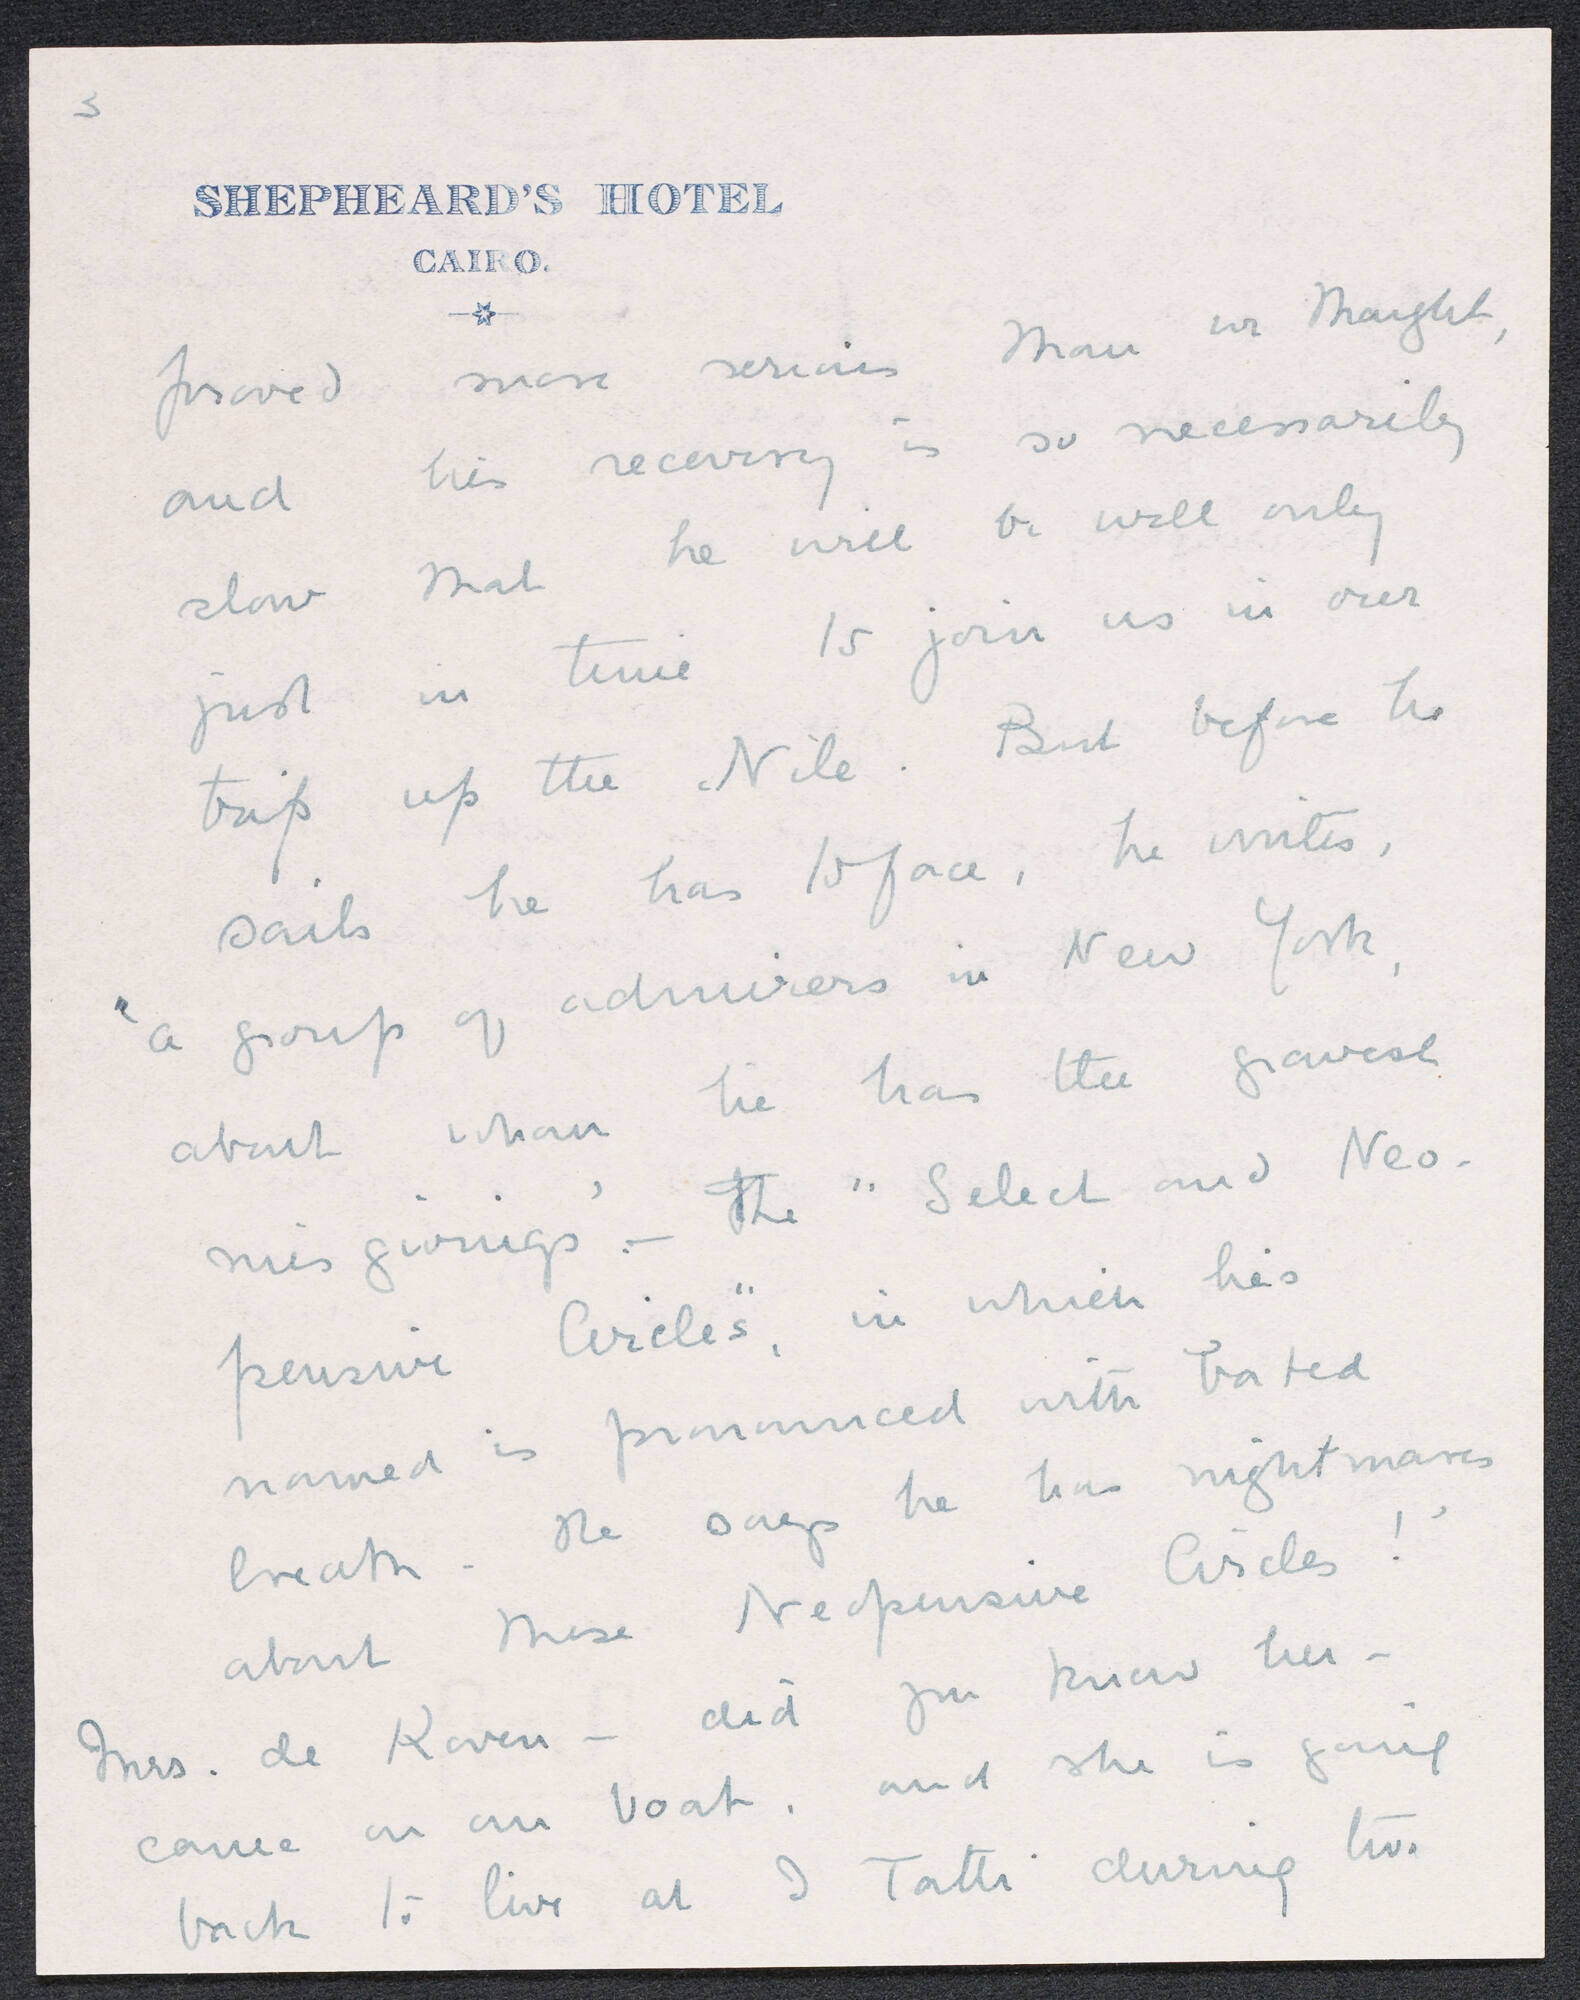 3
SHEPHEARD'S HOTEL
CAIRO.
proved more serious than we thought,
and his recovery is so necessarily
slow that he will be well only
just in time to join us in our
trip up the Nile. But before he
sails he has to face, he writes,
"a group of admirers in New York,
about whom he has the gravest
misgivings' - The "Select and Neo-
pensive Circles", in which his
named is pronounced with bated
breath - He says he has nightmares
about these Neopensive Circles!'
Mrs. de Koven - did you know her -
came on our boat, and she is going
back to live at I Tatti during